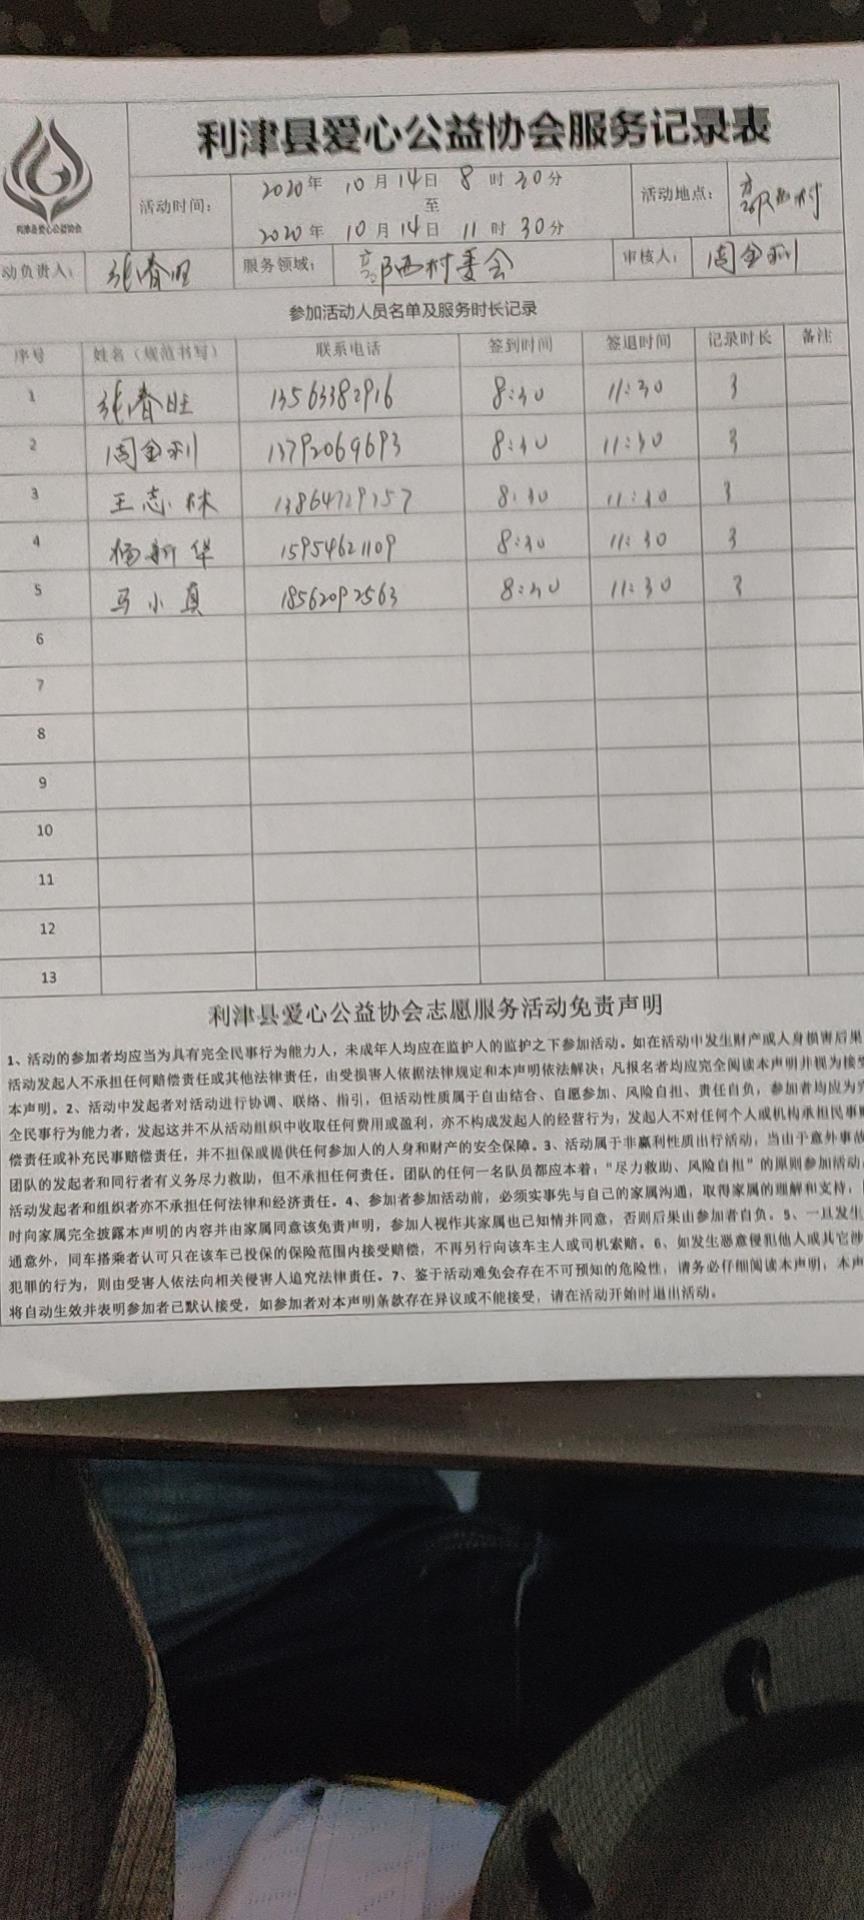 利津县爱心公益协会服务记录表
利津县爱心公益协会
活动时间： 2020年 10月14日 8时30分
至
2020年 10月14日 11时30分
活动地点： 村
动负责人： 张春旺 服务领域： 西村委会 审核人： 周金利
参加活动人员名单及服务时长记录
序号 姓名（规范书写） 联系电话 签到时间 签退时间 记录时长 备注
1 张春旺 13563382916 8:30 11:30 3
2 周金利 13792069693 8:30 11:30 3
3 王志林 8:30 11:30 3
4 杨新华 15954621109 8:30 11:30 3
5 马小真 18562092563 8:30 11:30 3
6
7
8
9
10
11
12
13
利津县爱心公益协会志愿服务活动免责声明
1、活动的参加者均应当为具有完全民事行为能力人，未成年人均应在监护人的监护之下参加活动。如在活动中发生财产或人身损害后果
活动发起人不承担任何赔偿责任或其他法律责任，由受损害人依据法律规定和本声明依法解决；凡报名者均应完全阅读本声明并视为接受
本声明。2、活动中发起者对活动进行协调、联络、指引，但活动性质属于自由结合、自愿参加、风险自担、责任自负，参加者均应为完
全民事行为能力者，发起这并不从活动组织中收取任何费用或盈利，亦不构成发起人的经营行为，发起人不对任何个人或机构承担民事赔
偿责任或补充民事赔偿责任，并不担保或提供任何参加人的人身和财产的安全保障。3、活动属于非赢利性质出行活动，当由于意外事故
团队的发起者和同行者有义务尽力救助，但不承担任何责任。团队的任何一名队员都应本着：“尽力救助、风险自担”的原则参加活动
活动发起者和组织者亦不承担任何法律和经济责任。4、参加者参加活动前，必须实事先与自己的家属沟通，取得家属的理解和支持，
时向家属完全披露本声明的内容并由家属同意该免责声明，参加人视作其家属也已知情并同意，否则后果由参加者自负。5、一旦发生
通意外，同车搭乘者认可只在该车已投保的保险范围内接受赔偿，不再另行向该车主人或司机索赔。6、如发生恶意侵犯他人或其它涉
犯罪的行为，则由受害人依法向相关侵害人追究法律责任。7、鉴于活动难免会存在不可预知的危险性，请务必仔细阅读本声明，本声
将自动生效并表明参加者已默认接受，如参加者对本声明条款存在异议或不能接受，请在活动开始时退出活动。